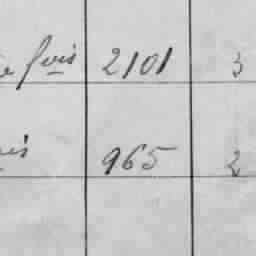 fois 2101 3
965 2